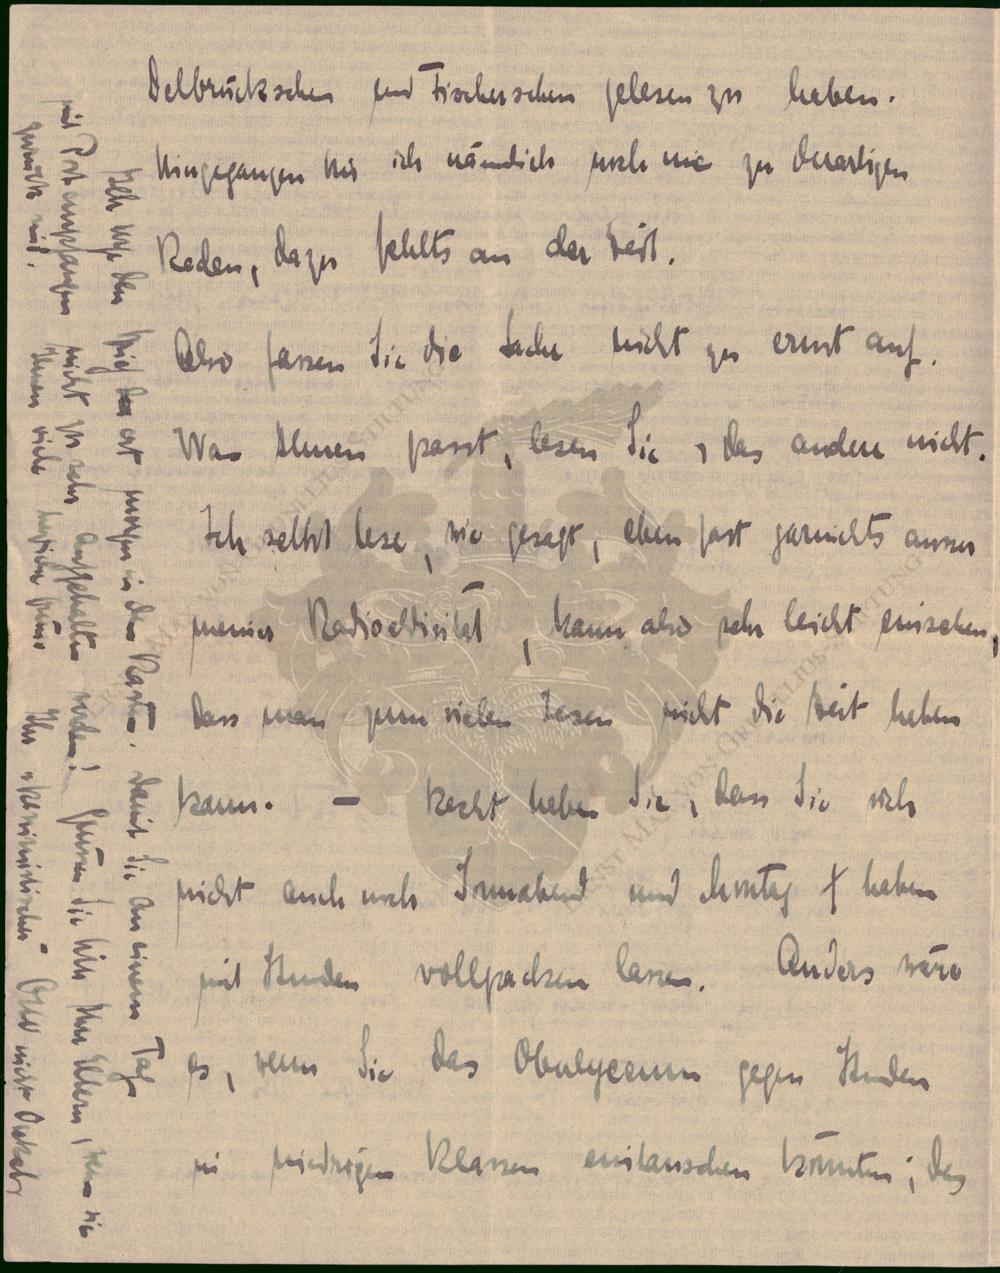 Delbrückschen und Fischerschen gelesen zu haben.
Hingegangen bin ich nämlich noch nie zu derartigen
Reden, dazu fehlts an der Zeit.
Also fassen Sie die Sache nicht zu ernst auf.
Was Ihnen passt, lesen Sie, das andere nicht.
Ich selbst lese, wie gesagt, eben fast garnichts ausser
meiner Radioaktivität, kann also sehr leicht einsehen,
dass man zum vielen Lesen nicht die Zeit haben
kann. – Recht haben Sie, dass Sie sich
nicht auch noch Sonnabend und Montag haben
mit Stunden vollpacken lassen. Anders wäre
es, wenn Sie das Oberlyceum gegen Stunden
in niedrigen Klassen eintauschen könnten; das
Ich werfe den Brief erst morgen in den Kasten, damit Sie an einem Tag
mit Post empfangen nicht zu sehr aufgehalten werden! Grüssen Sie bitte Ihre Eltern, wenn sie
zurück sind. Ihnen viele herzliche Grüsse Ihr Otto nicht Onkel
ERNST MAX VON GRUNELIUS-STIFTUNG
ERNST MAX VON GRUNELIUS-STIFTUNG